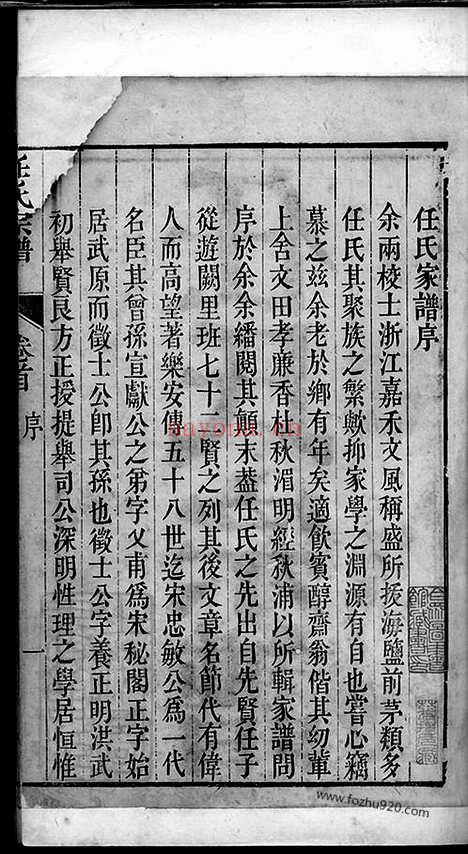 任氏家譜序
余兩校士浙江嘉禾文風稱盛所援海鹽前茅類多
任氏其聚族之繁歟抑家學之淵源有自也嘗心竊
慕之玆余老於鄉有年矣適飲賓醇齋翁偕其幼輩
上舍文田孝廉香杜秋湄明經秋浦以所輯家譜問
序於余余繙閱其顛末蓋任氏之先出自先賢任子
從遊闕里班七十二賢之列其後文章名節代有偉
人而高望著樂安傳五十八世迄宋忠敏公為一代
名臣其曾孫宣獻公之弟字乂甫爲宋秘閣正字始
居武原而徵士公卽其孫也徵士公字養正明洪武
初舉賢良方正授提舉司公深明性理之學居恒惟
任氏宗譜
卷首
序
一
nayona.cn
www.fozhu920.com